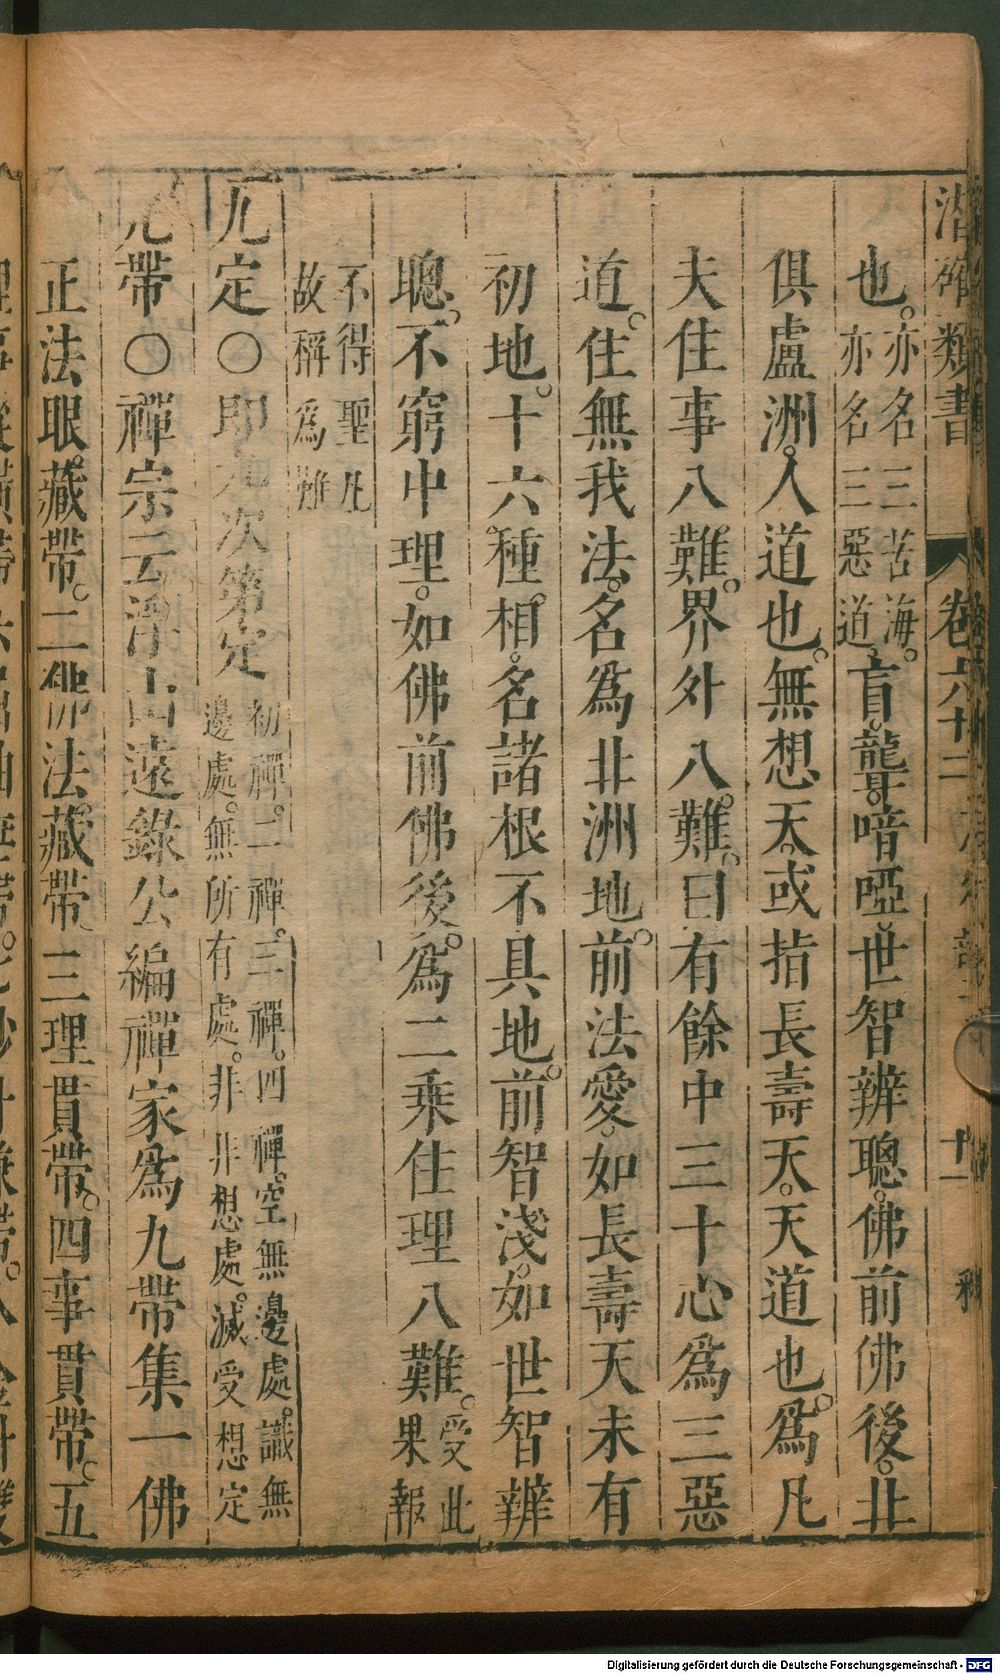 潛確類書 卷六十二 十一
也。亦名三苦海。亦名三惡道。盲。聾。喑啞。世智辨聰。佛前佛後。北
俱盧洲。人道也。無想天。或指長壽天。天道也。為凡
夫住事八難。界外八難。曰有餘中三十心為三惡
道。住無我法。名為北洲地。前法愛。如長壽天未有
初地。十六種相。名諸根不具地。前智淺。如世智辨
聰。不窮中理。如佛前佛後。為二乘住理八難。受此果報
不得聖凡故稱為難
九定〇即九次第定初禪。二禪。三禪。四禪。空無邊處。識無邊處。無所有處。非非想處。滅受想定
九帶〇禪宗云浮山遠錄公編禪家為九帶集一佛
正法眼藏帶。二佛法藏帶三理貫帶。四事貫帶。五
Digitalisierung gefördert durch die Deutsche Forschungsgemeinschaft - DFG